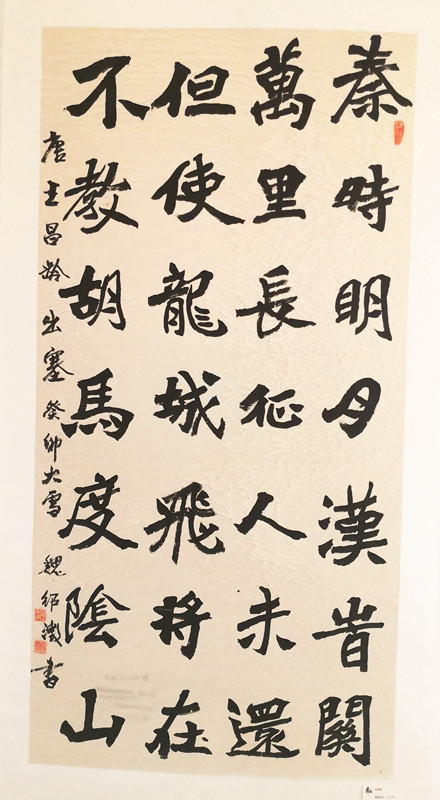 秦時明月漢旹關
萬里長征人未還
但使龍城飛將在
不教胡馬度陰山
唐王昌齡出塞癸卯大雪 魏紹澂書